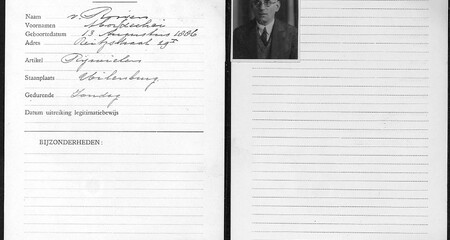 Naam v. Rooijen
Voornamen Mordechai
Geboortedatum 13 Augustus 1886
Adres Reitzstraat 29
Artikel Rijwielen
Standplaats Uilenburg
Gedurende Zondag
Datum uitreiking legitimatiebewijs
BIJZONDERHEDEN: